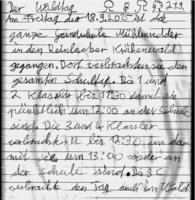 Der Waldtag
Am Freitag der 18.9.2015 ist die
ganze Grundschule
in den Reinbeker Krähenwald
gegangen. Dort verbrachten sie den
gesamten Schultag. Die 1. und
2. Klassen bis 11:30 damit sie
pünktlich um 12:00 an der Schule
sind. Die 3. und 4. Klassen
verbrachten bis 12:30 im da
mit sie um 13:00 wieder an
der Schule sind. Die 3 C
verbrachte den Tag auch im Wald